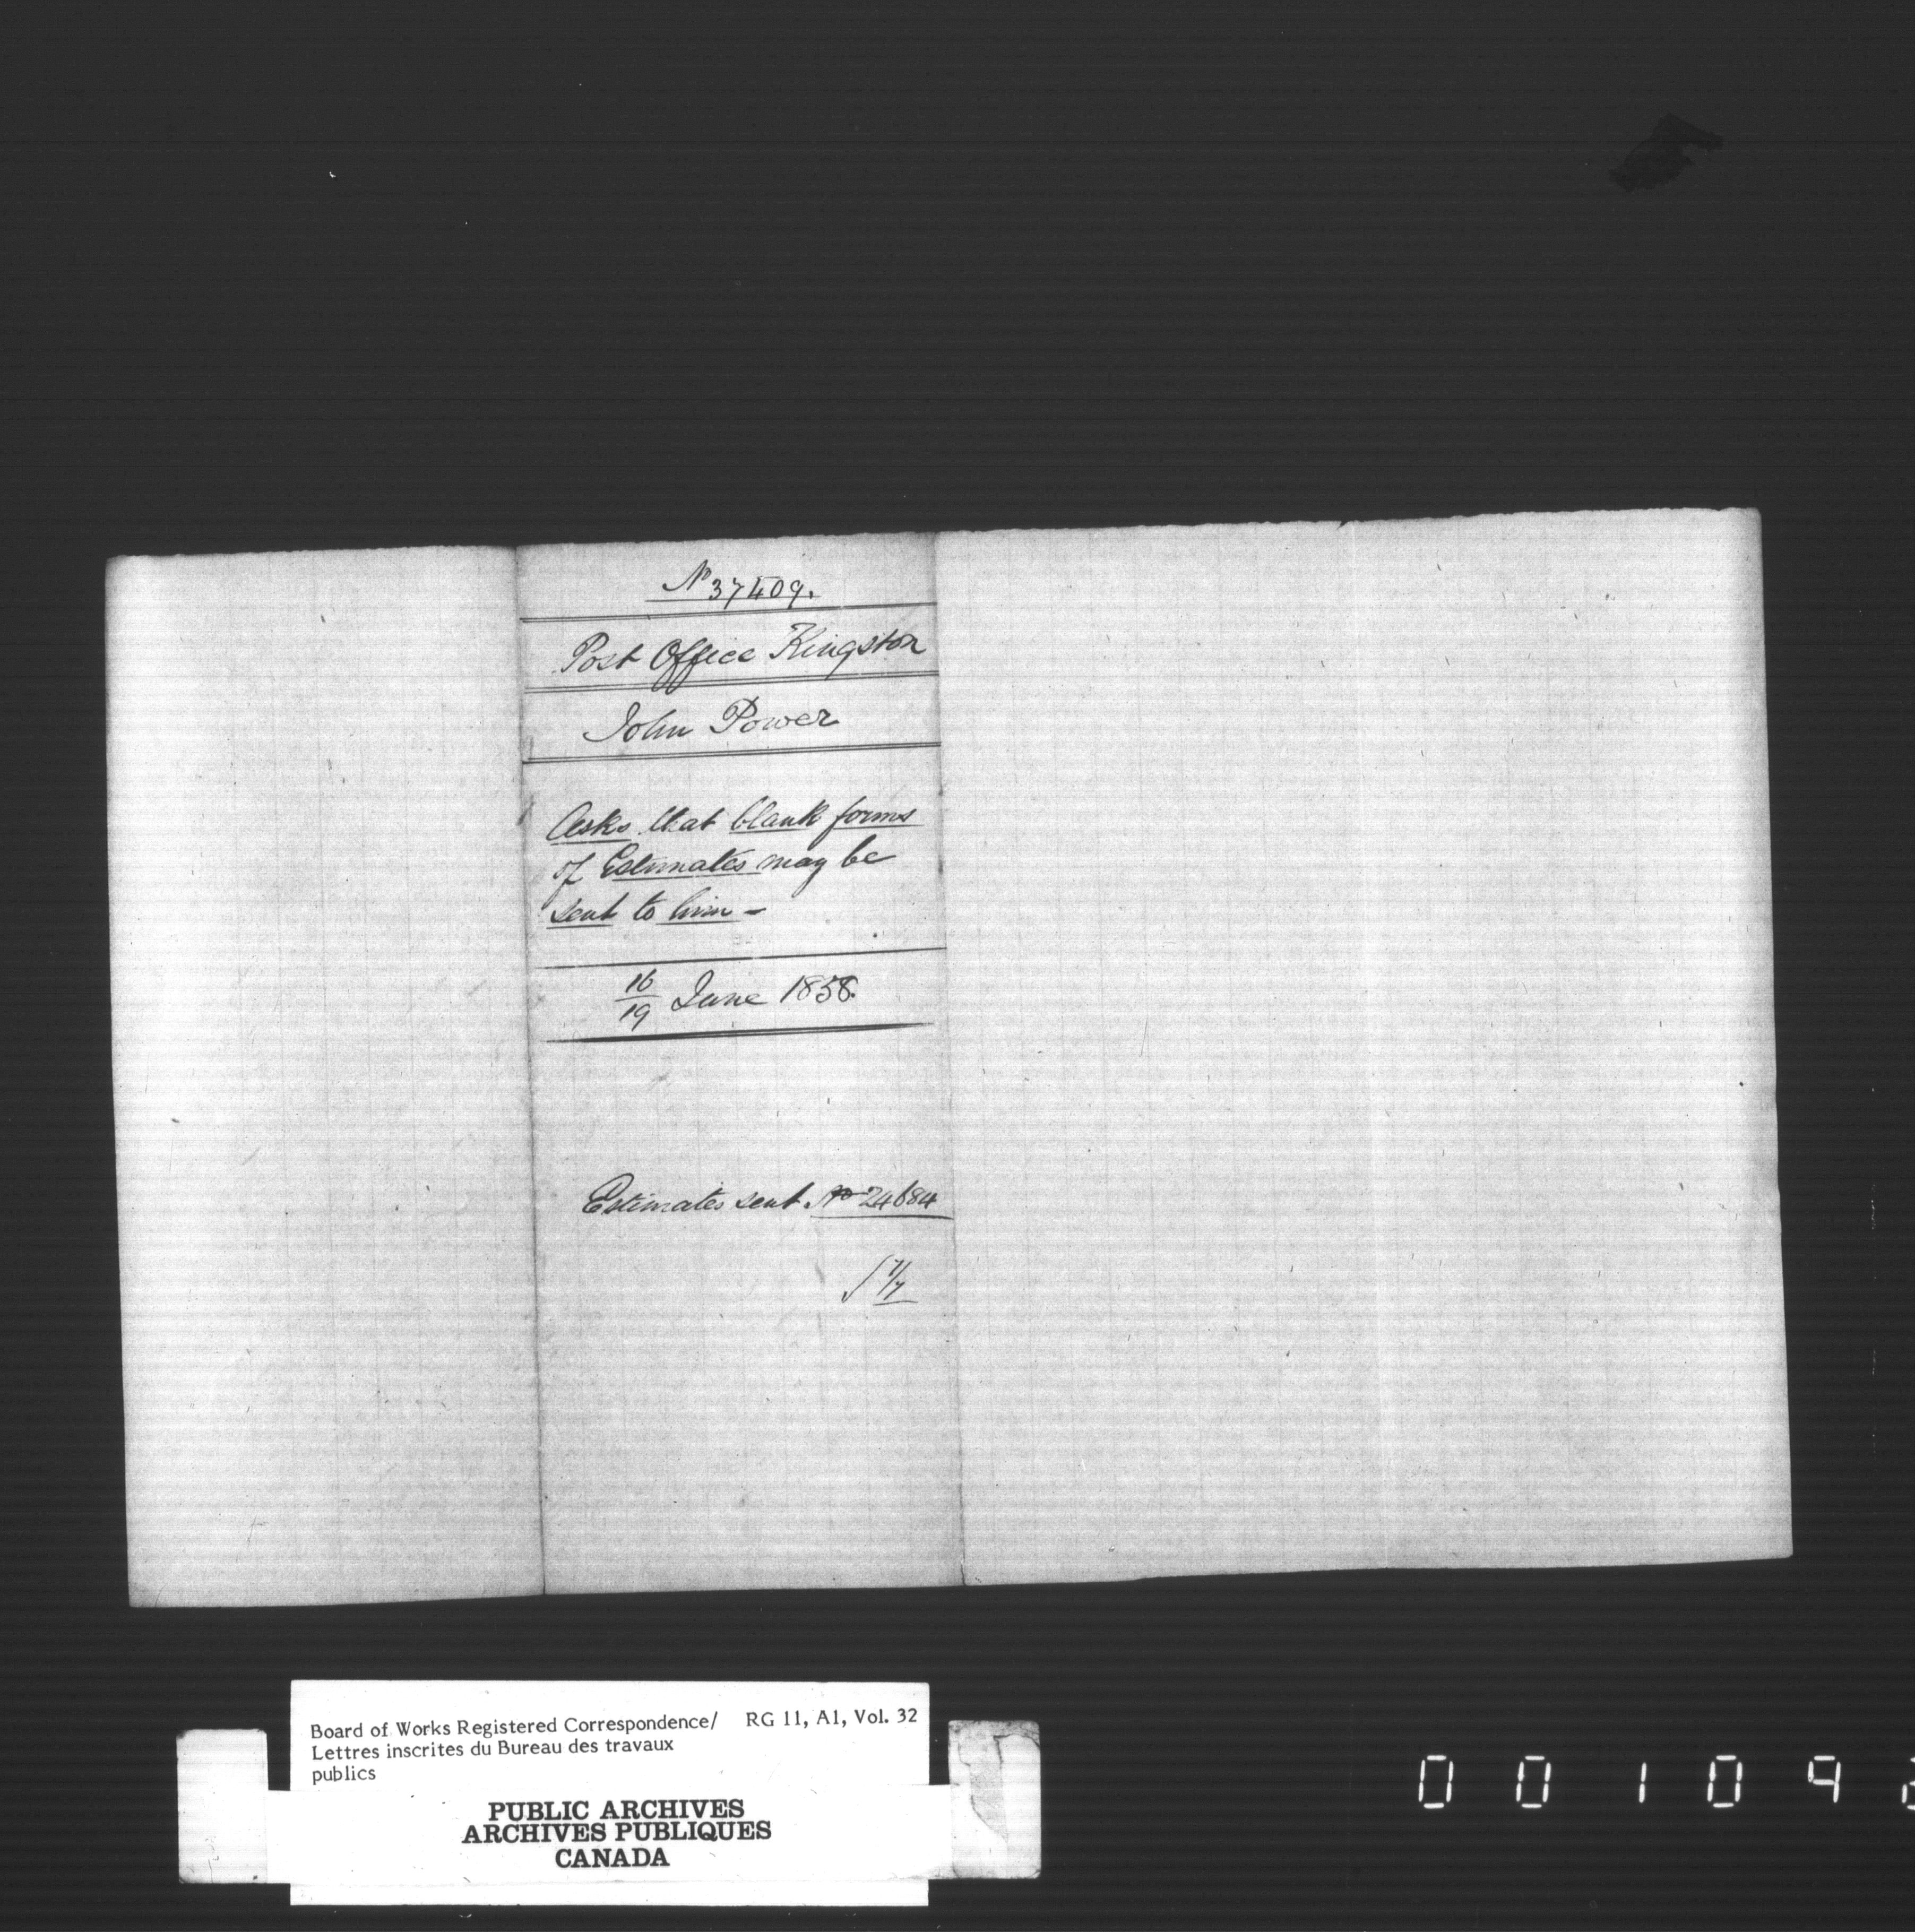 No 37409.
Post Office Kingston
John Power
Asks that blank forms
of Estimates may be
sent to him -
16/19 June 1858.
Estimates sent No 24684
Board of Works Registered Correspondence/ RG 11, A1, Vol. 32
Lettres inscrites du Bureau des travaux
publics
PUBLIC ARCHIVES
ARCHIVES PUBLIQUES
CANADA
0 0 1 0 9